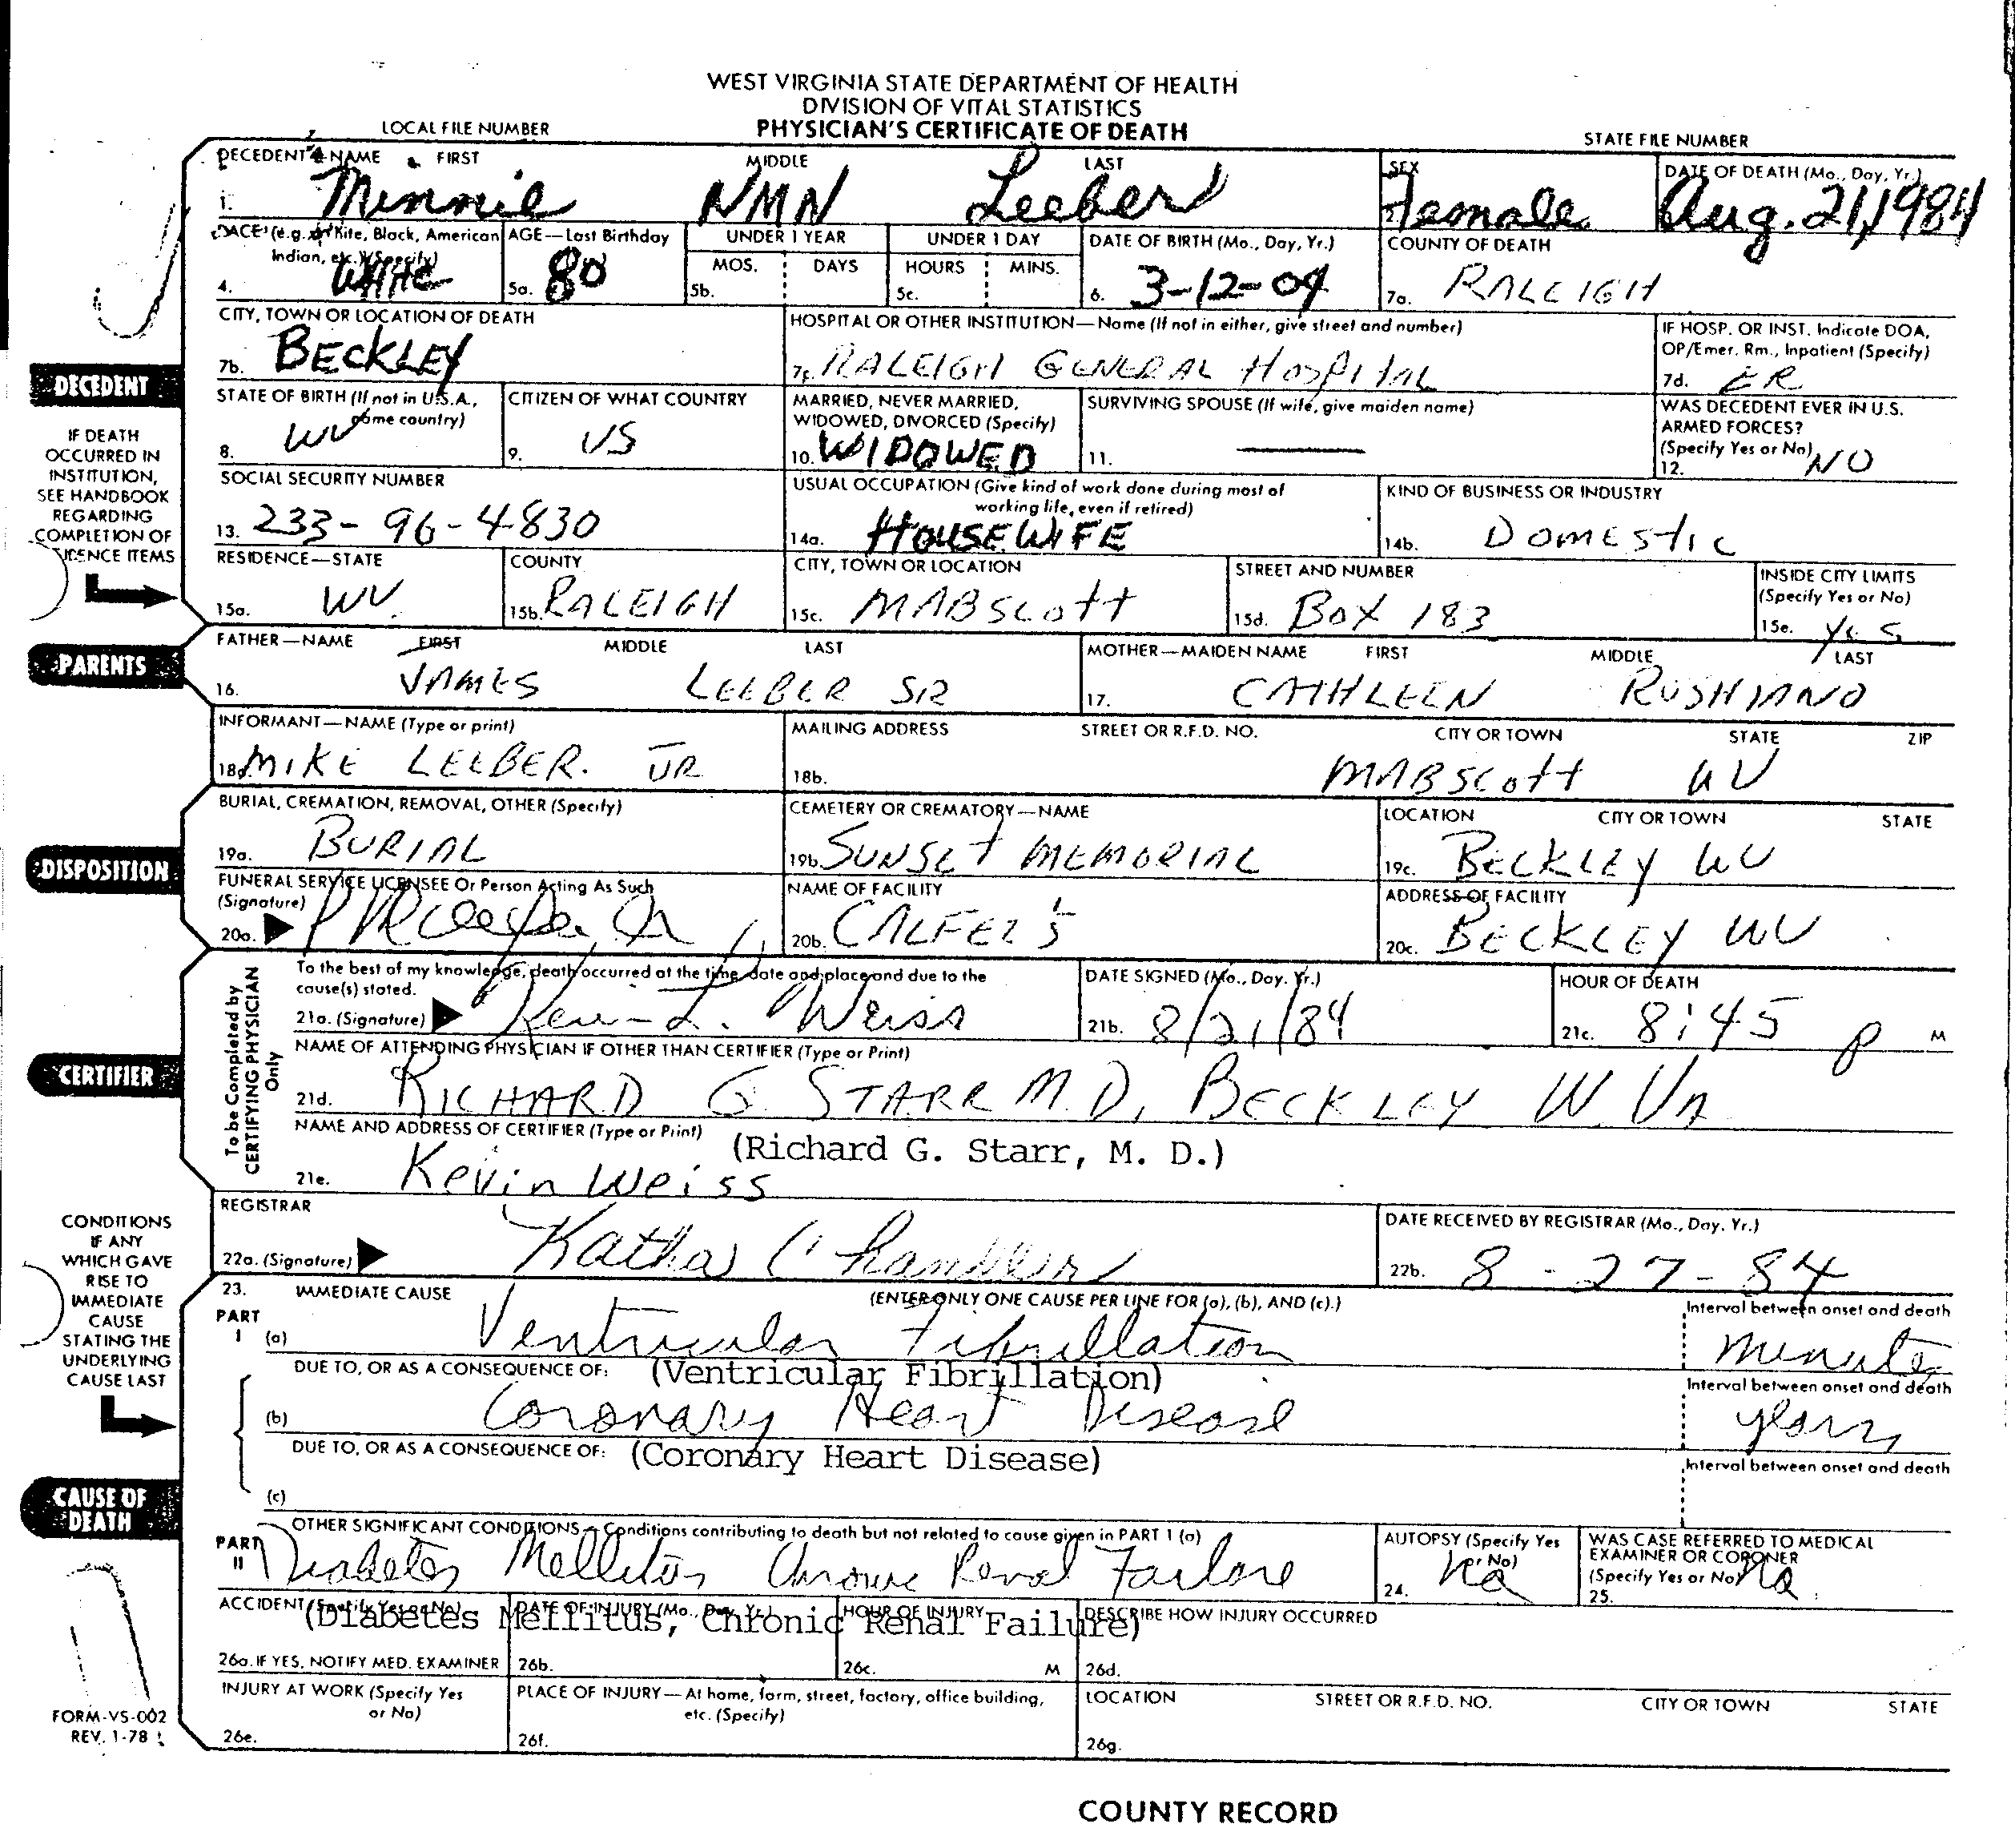 WEST VIRGINIA STATE DEPARTMENT OF HEALTH
DIVISION OF VITAL STATISTICS
PHYSICIAN'S CERTIFICATE OF DEATH
LOCAL FILE NUMBER STATE FILE NUMBER
DECEDENT NAME FIRST MIDDLE LAST SEX DATE OF DEATH (Mo., Day, Yr.)
1. Minnie NMN Leeber Female Aug. 21, 1984
RACE (e.g. White, Black, American Indian, etc.) (Specify) AGE—Last Birthday UNDER 1 YEAR UNDER 1 DAY DATE OF BIRTH (Mo., Day, Yr.) COUNTY OF DEATH
MOS. DAYS HOURS MINS.
4. White 5a. 80 5b. 5c. 6. 3-12-04 7a. RALEIGH
CITY, TOWN OR LOCATION OF DEATH HOSPITAL OR OTHER INSTITUTION—Name (If not in either, give street and number) IF HOSP. OR INST. Indicate DOA, OP/Emer. Rm., Inpatient (Specify)
7b. BECKLEY 7c. RALEIGH GENERAL HOSPITAL 7d. ER
DECEDENT
IF DEATH
OCCURRED IN
INSTITUTION,
SEE HANDBOOK
REGARDING
COMPLETION OF
IDENCE ITEMS
STATE OF BIRTH (If not in U.S.A., name country) CITIZEN OF WHAT COUNTRY MARRIED, NEVER MARRIED, WIDOWED, DIVORCED (Specify) SURVIVING SPOUSE (If wife, give maiden name) WAS DECEDENT EVER IN U.S. ARMED FORCES? (Specify Yes or No)
8. WV 9. US 10. WIDOWED 11. — 12. NO
SOCIAL SECURITY NUMBER USUAL OCCUPATION (Give kind of work done during most of working life, even if retired) KIND OF BUSINESS OR INDUSTRY
13. 233-96-4830 14a. HOUSEWIFE 14b. DOMESTIC
RESIDENCE—STATE COUNTY CITY, TOWN OR LOCATION STREET AND NUMBER INSIDE CITY LIMITS (Specify Yes or No)
15a. WV. 15b. RALEIGH 15c. MABSCOTT 15d. BOX 183 15e. Yes
PARENTS
FATHER—NAME FIRST MIDDLE LAST MOTHER—MAIDEN NAME FIRST MIDDLE LAST
16. JAMES LEEBER SR 17. CATHLEEN RUSHIANO
INFORMANT—NAME (Type or print) MAILING ADDRESS STREET OR R.F.D. NO. CITY OR TOWN STATE ZIP
18a. MIKE LEEBER. JR 18b. MABSCOTT WV
BURIAL, CREMATION, REMOVAL, OTHER (Specify) CEMETERY OR CREMATORY—NAME LOCATION CITY OR TOWN STATE
19a. BURIAL 19b. SUNSET MEMORIAL 19c. BECKLEY WV
DISPOSITION
FUNERAL SERVICE LICENSEE Or Person Acting As Such (Signature) NAME OF FACILITY ADDRESS OF FACILITY
20a. 20b. CALFEE'S 20c. BECKLEY WV
CERTIFIER
To be Completed by
CERTIFYING PHYSICIAN
Only
To the best of my knowledge, death occurred at the time, date and place and due to the cause(s) stated. DATE SIGNED (Mo., Day, Yr.) HOUR OF DEATH
21a. (Signature) Kevin L. Weiss 21b. 8/21/84 21c. 8:45 P M
NAME OF ATTENDING PHYSICIAN IF OTHER THAN CERTIFIER (Type or Print)
21d. RICHARD G. STARR M.D, BECKLEY W VA
NAME AND ADDRESS OF CERTIFIER (Type or Print) (Richard G. Starr, M. D.)
21e. Kevin Weiss
REGISTRAR DATE RECEIVED BY REGISTRAR (Mo., Day, Yr.)
22a. (Signature) 22b. 8-27-84
CONDITIONS
IF ANY
WHICH GAVE
RISE TO
IMMEDIATE
CAUSE
STATING THE
UNDERLYING
CAUSE LAST
CAUSE OF
DEATH
23. IMMEDIATE CAUSE (ENTER ONLY ONE CAUSE PER LINE FOR (a), (b), AND (c).) Interval between onset and death
PART I (a) Ventricular Fibrillation minutes
DUE TO, OR AS A CONSEQUENCE OF: (Ventricular Fibrillation) Interval between onset and death
(b) Coronary Heart Disease years
DUE TO, OR AS A CONSEQUENCE OF: (Coronary Heart Disease) Interval between onset and death
(c)
OTHER SIGNIFICANT CONDITIONS—Conditions contributing to death but not related to cause given in PART 1 (a) AUTOPSY (Specify Yes or No) WAS CASE REFERRED TO MEDICAL EXAMINER OR CORONER (Specify Yes or No)
PART II Diabetes Mellitus Chronic Renal Failure 24. No 25. No
(Diabetes Mellitus, Chronic Renal Failure)
ACCIDENT (Specify Yes or No) DATE OF INJURY (Mo., Day, Yr.) HOUR OF INJURY DESCRIBE HOW INJURY OCCURRED
26a. IF YES, NOTIFY MED. EXAMINER 26b. 26c. M 26d.
INJURY AT WORK (Specify Yes or No) PLACE OF INJURY—At home, farm, street, factory, office building, etc. (Specify) LOCATION STREET OR R.F.D. NO. CITY OR TOWN STATE
26e. 26f. 26g.
FORM-VS-002
REV. 1-78
COUNTY RECORD